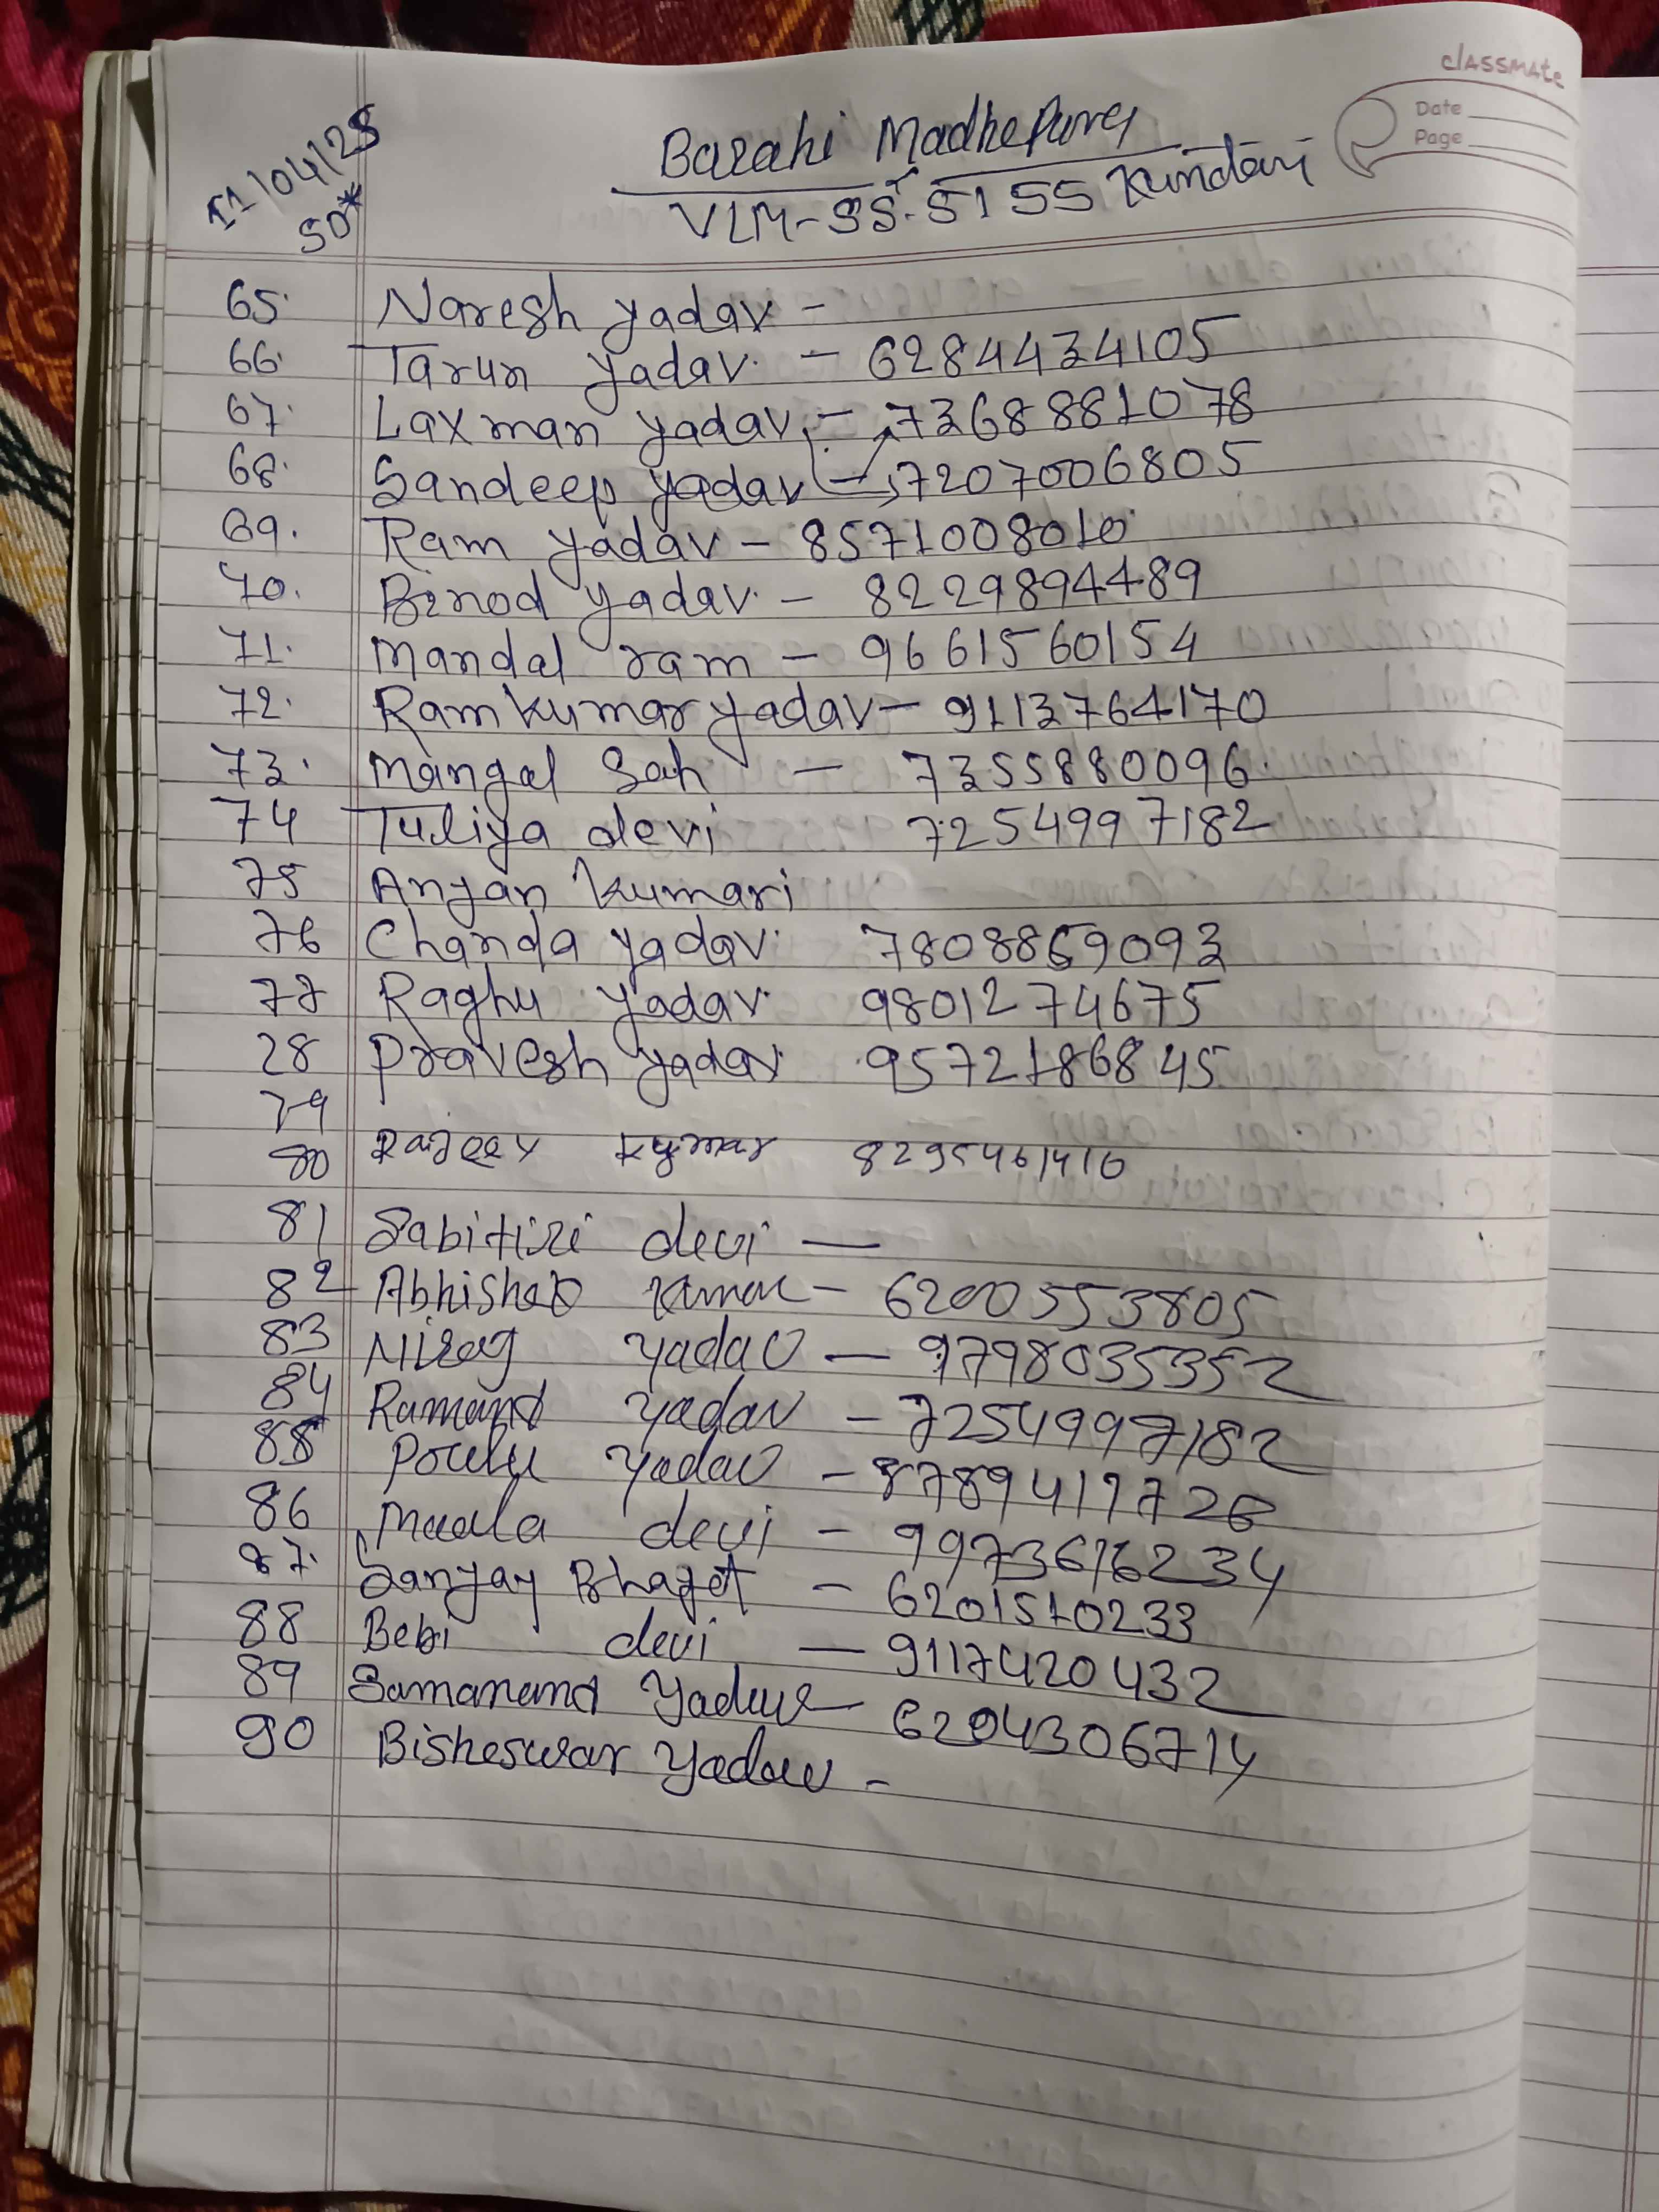 classmate
Date
Page
11/04/25
50*
Barahi Madhepura
VLM-SS-5155 Kundan
65. Naresh yadav -
66. Tarun yadav. - 6284434105
67. Laxman yadav - 7368881078
68. Sandeep yadav - 7207006805
69. Ram yadav - 8571008010
70. Binod yadav. - 8229894489
71. Mandal ram - 9661560154
72. Ramkumar yadav - 9113764170
73. Mangal Sah - 7355880096.
74 Tuliya devi 7254997182
75 Anjan kumari
76 Chanda yadav. 7808869093
77 Raghu yadav. 9801274675
28 Pravesh yadav. 9572186845
79
80 Rajeev Kumar 8295461410
81 Sabitiri devi —
82 Abhishek Kumar - 6200553805
83 Niraj yadav — 9798035352
84 Ramand yadav - 7254997182
85 yadav - 8789419726
86 Maala devi - 9973616234
87. Sanjay Bhagat - 6201510233
88 Bebi devi — 9117420432
89 Samanand Yadav - 6204306714
90 Bisheswar Yadav -